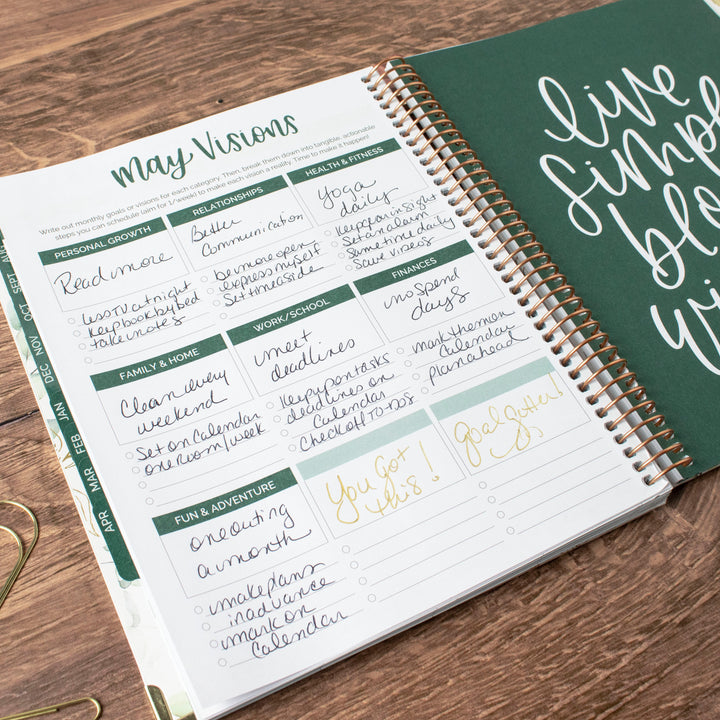 May Visions
Write out monthly goals or visions for each category. Then, break them down into tangible, actionable
steps you can schedule (aim for 1/week!) to make each vision a reality. Time to make it happen!
PERSONAL GROWTH
Read more
less TV at night
keep book by bed
take notes
RELATIONSHIPS
Better
Communication
be more open
express myself
Set time aside
HEALTH & FITNESS
Yoga
daily
Keep in sight
Set an alarm
Same time daily
Save videos
FAMILY & HOME
Clean every
weekend
Set on Calendar
one room/week
WORK/SCHOOL
meet
deadlines
Keep up on tasks
deadlines on
Calendar
Check off TO-DOs
FINANCES
no spend
days
mark them on
Calendar
plan ahead
FUN & ADVENTURE
one outing
a month
make plans
in advance
mark on
Calendar
You Got
this!
Goal Getter!
SEPT
OCT
NOV
DEC
JAN
FEB
MAR
APR
live
simply